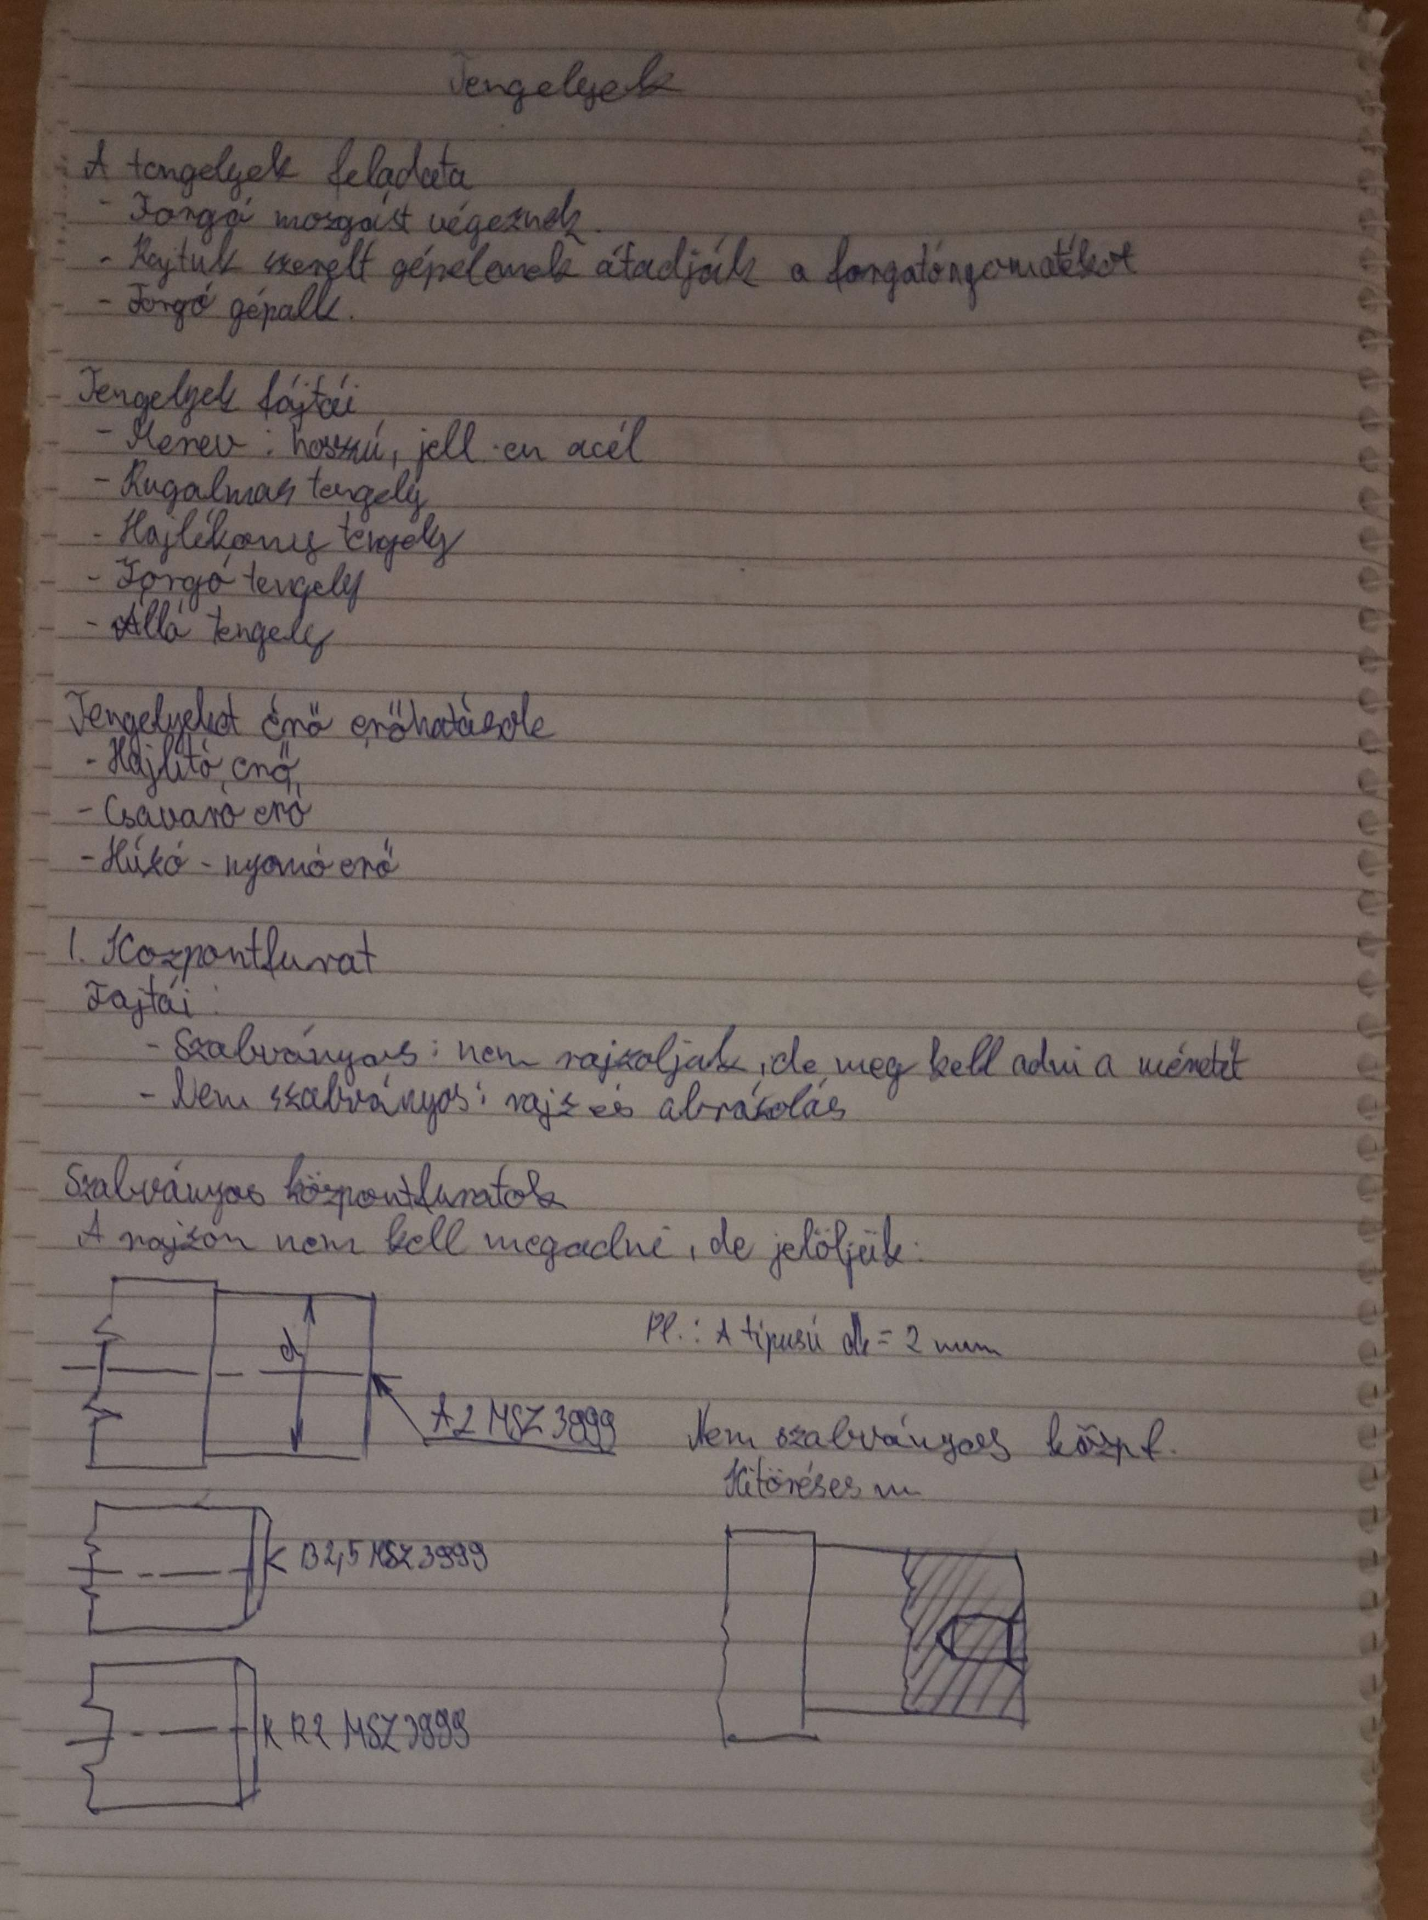 Tengelyek
A tengelyek feladata
- Forgó mozgást végeznek.
- Rajtuk szerelt gépelemek átadják a forgatónyomatékot
- Forgó gépalk.
Tengelyek fajtái
- Merev : hosszú, jell. en acél
- Rugalmas tengely
- Hajlékony tengely
- Forgó tengely
- Álló tengely
Tengelyeket érő erőhatások
- Hajlító erő
- Csavaró erő
- Húzó - nyomó erő
1. Központfurat
Fajtái :
- Szabványos : nem rajzoljak, de meg kell adni a méretét
- Nem szabványos : rajz és abrázolás
Szabványos központfuratok
A rajzon nem kell megadni, de jelöljük :
d
Pl. : A tipusú dk = 2 mm
A2 MSZ 3999
Nem szabványos közpf.
Kitöréses m
B2,5 MSZ 3999
R2 MSZ 3999